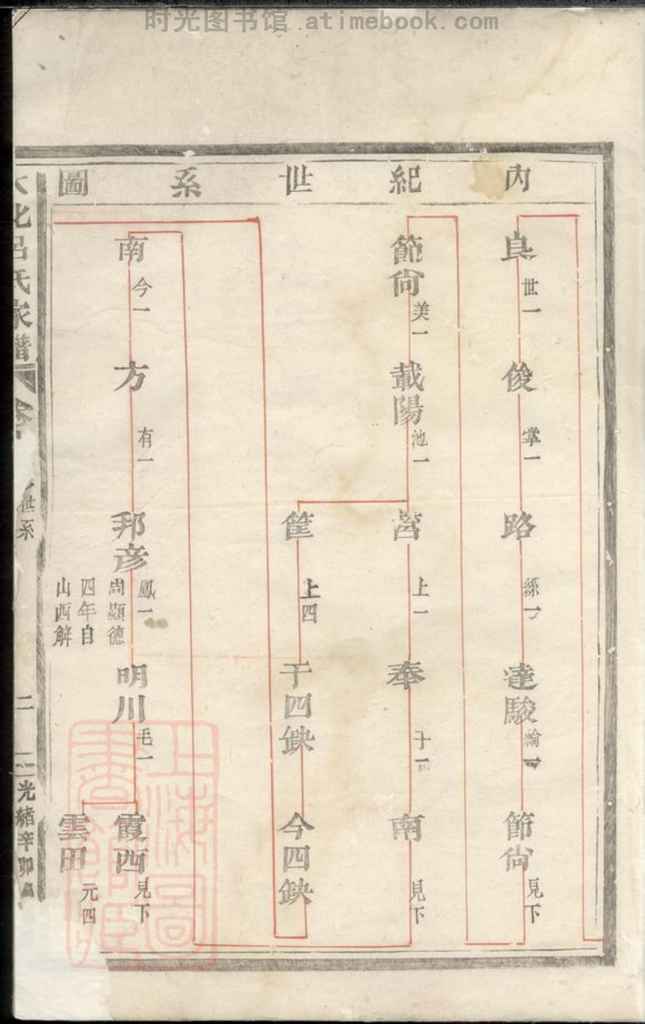 时光图书馆 www.atimebook.com
內紀世系圖
良 世一
俊 掌一
路
達駿
節尙 見下
節尙 美一
載陽 池一
營 上一
奉
南 見下
筐 上四
干四缺
今四缺
南 今一
方 有一
邦彥 鳳一
周顯德
四年自
山西解
明川 毛一
霞西 見下
雲田 元四
呂氏家譜
世系
二
光緒辛卯
上海圖
書館藏